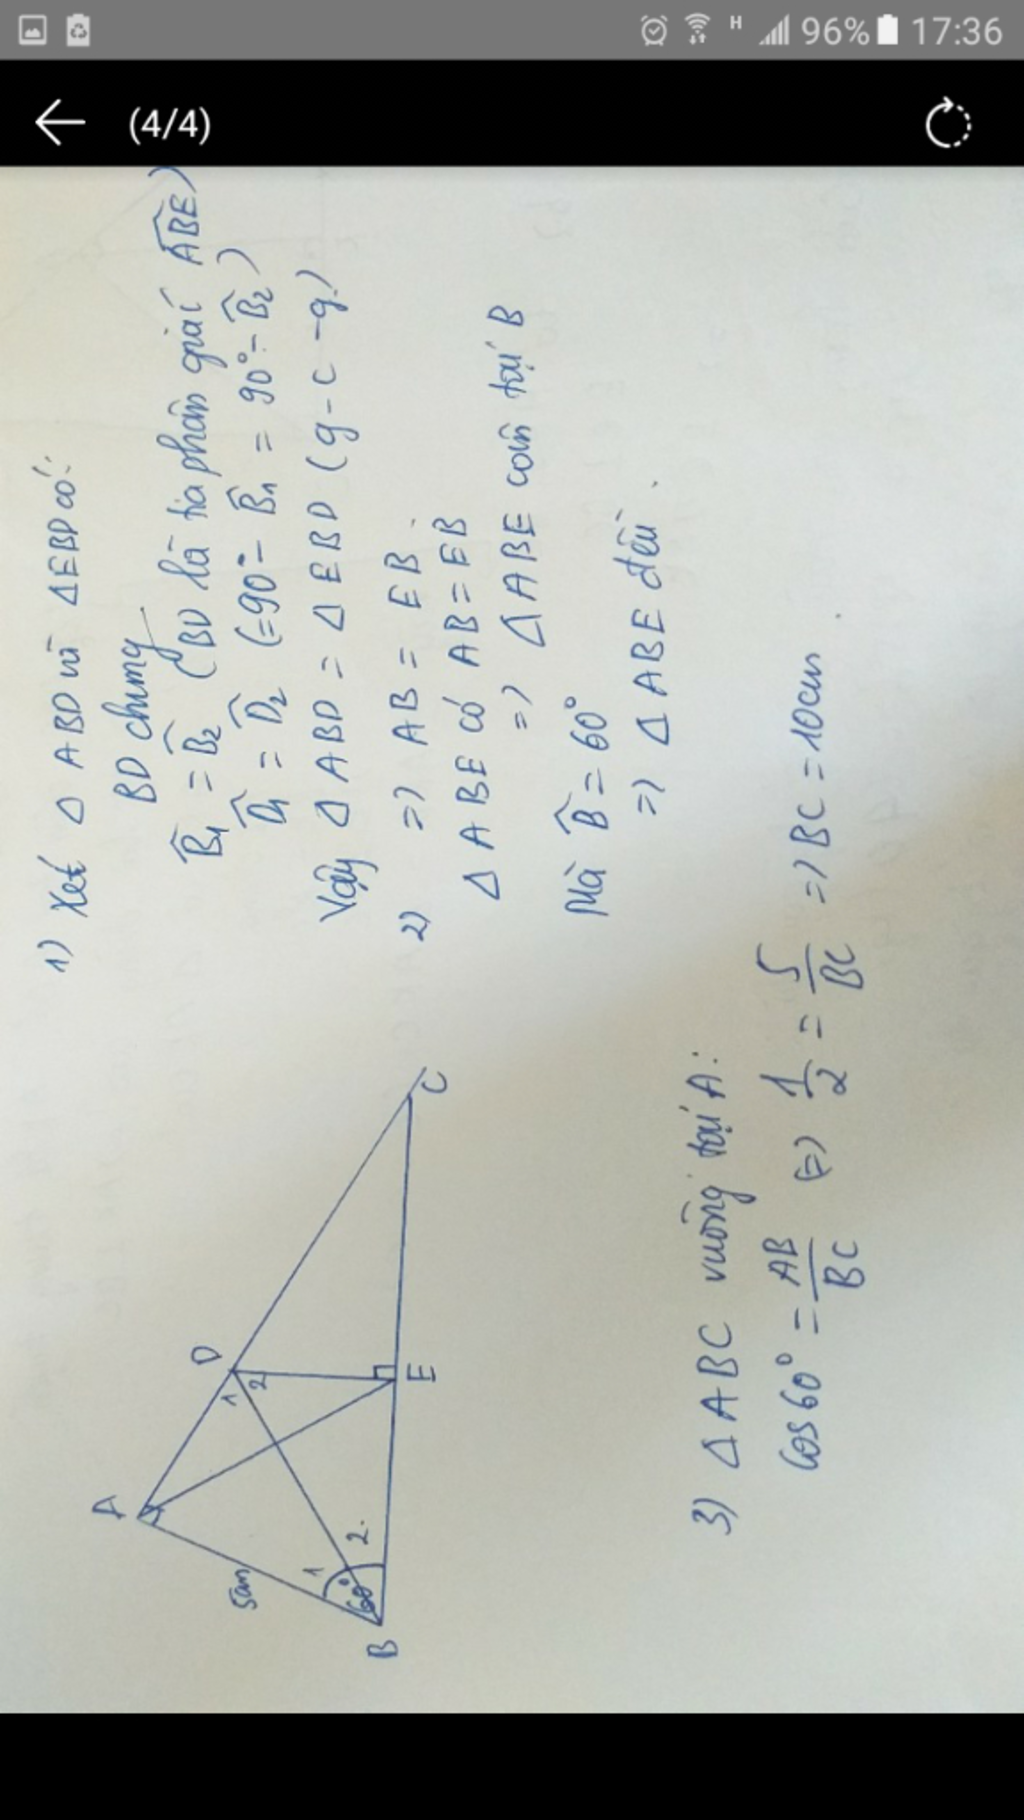 H 96% 17:36
(4/4)
1) Xét Δ ABD và ΔEBD có:
BD chung
B̂1 = B̂2 (BD là tia phân giác ABE)
D̂1 = D̂2 (=90° - B̂1 = 90° - B̂2)
Vậy Δ ABD = Δ EBD (g - c - g)
2) => AB = EB.
Δ ABE có AB = EB
=> Δ ABE cân tại B
Mà B̂ = 60°
=> Δ ABE đều.
A
D
C
1
2
5cm
1
60°
2.
B
E
3) Δ ABC vuông tại A:
cos60° = AB/BC (=) 1/2 = 5/BC => BC = 10cm.